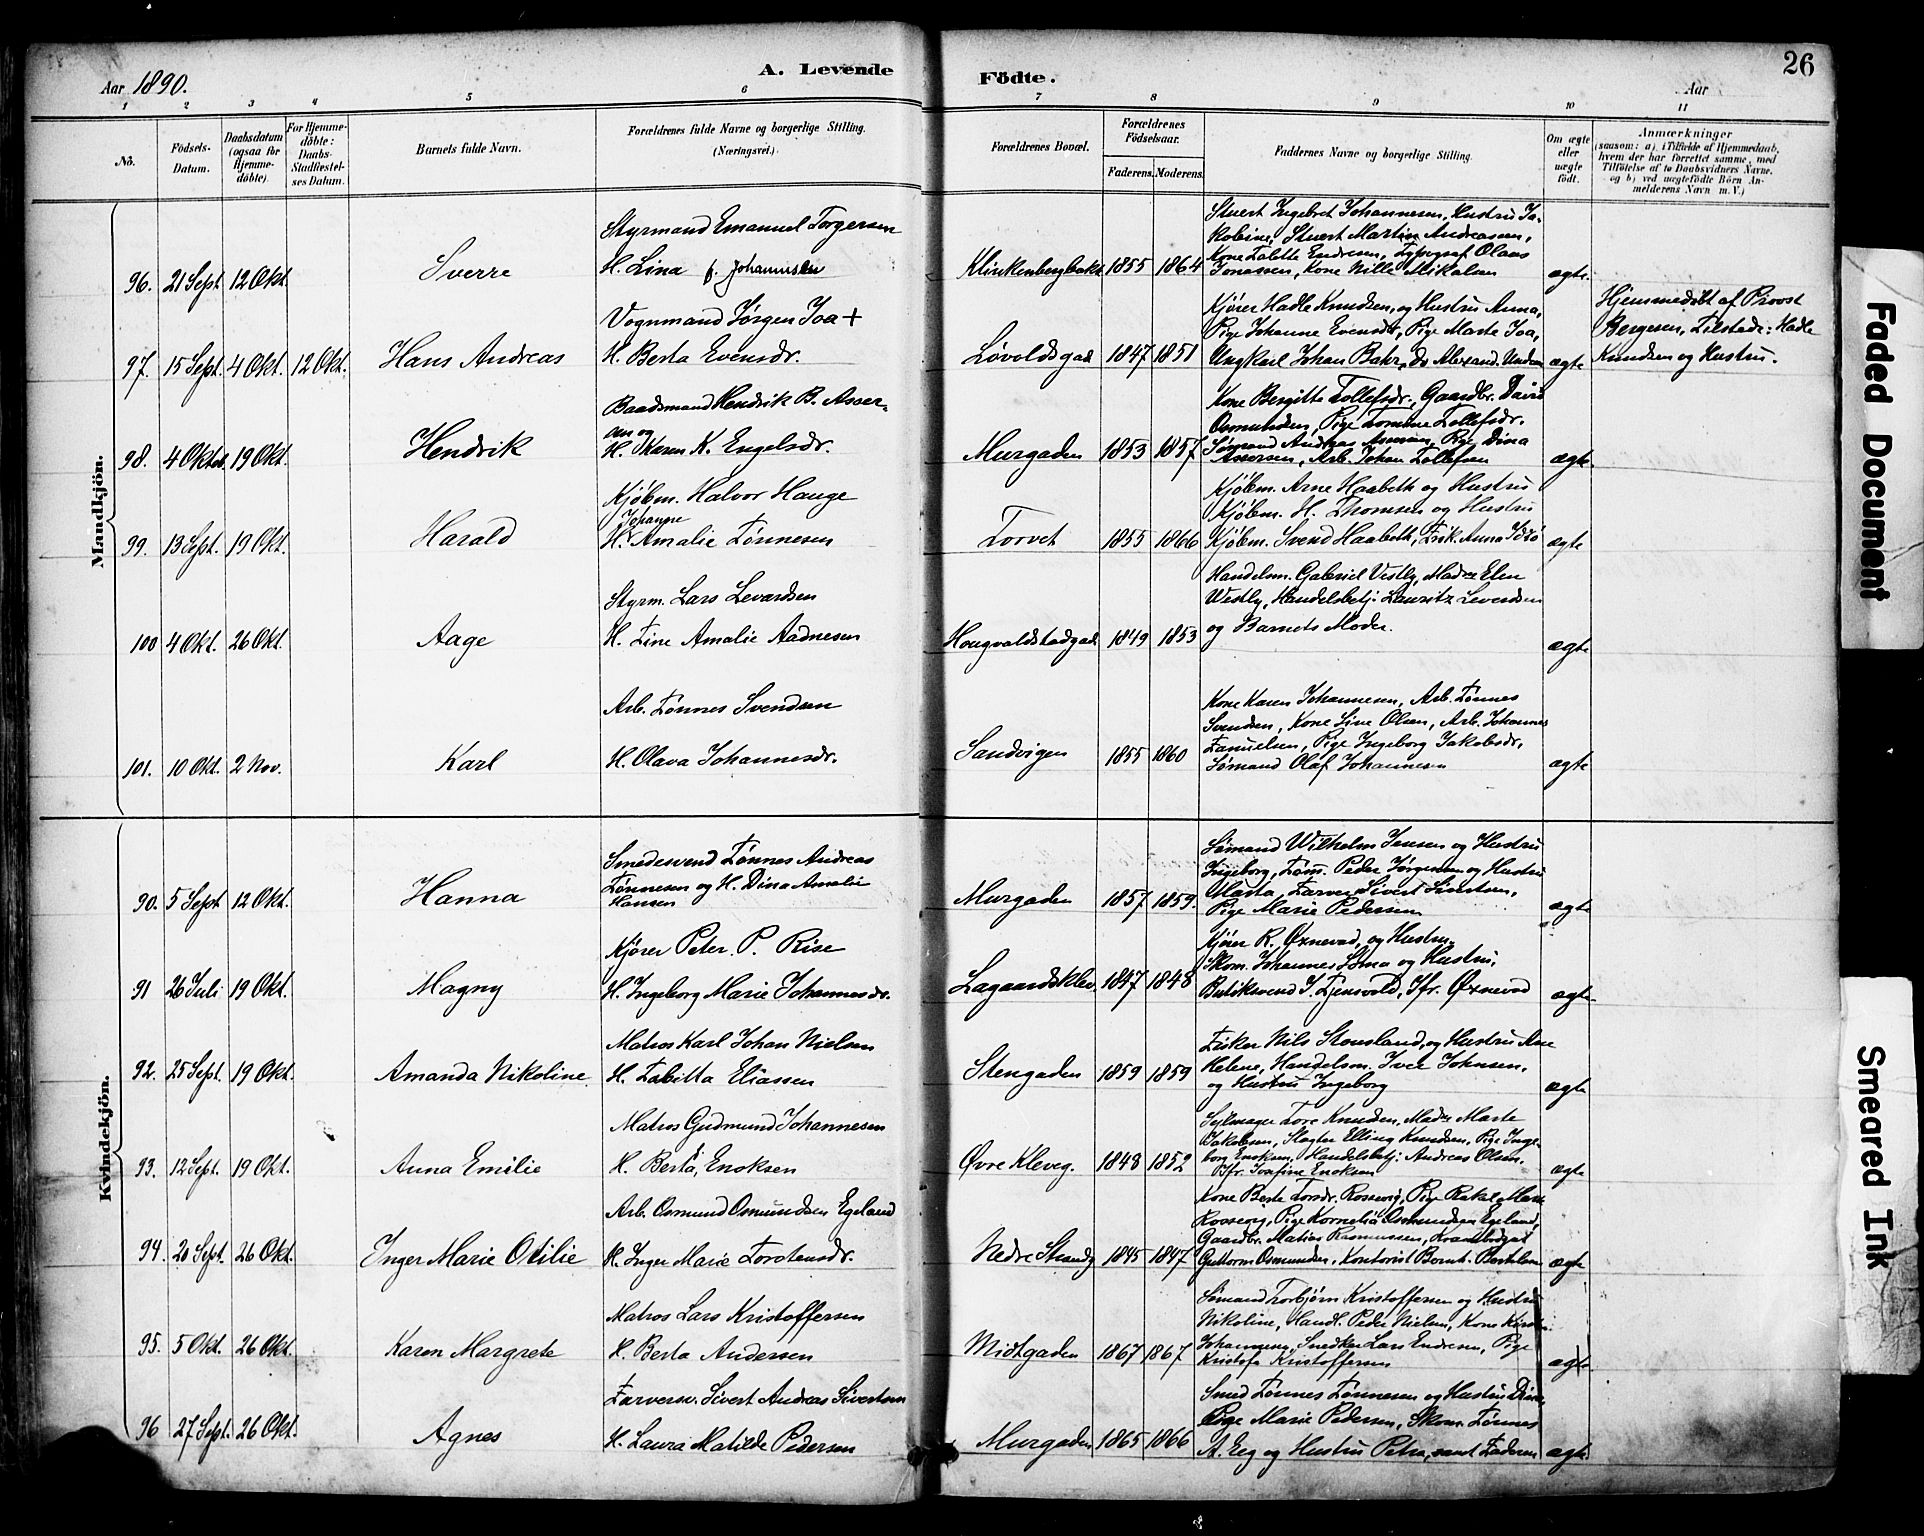 Aar 1890.
A. Levende Födte.
Aar
26
1 2 3 4 5 6 7 8 9 10 11
No.
Födsels-Datum.
Daabsdatum (ogsaa for Hjemme-döbte).
For Hjemme-döbte: Daabs-Stadfæstel-ses Datum.
Barnets fulde Navn.
Forældrenes fulde Navne og borgerlige Stilling. (Næringsvei.)
Forældrenes Bopæl.
Forældrenes Födselsaar.
Faderens. Moderens.
Faddernes Navne og borgerlige Stilling.
Om ægte eller uægte födt.
Anmærkninger
(saasom: a) i Tilfælde af Hjemmedaab,
hvem der har forrettet samme, med
Tilföielse af to Daabsvidners Navne.
og b) ved uægtefödte Börn An-
melderens Navn m. V.)
Mandkjön.
96. 21 Sept 12 Okt. Sverre
Styrmand Emanuel Torgersen
H. Lina f. Johannesen
Klinkenbergbakk. 1855 1864
Stuert Ingebret Johannesen, Hustru Ja-
kobine, Stuert Martin Andreassen,
Kone Tolette Endresen, Typograf Olaus
Jonassen, Kone Nille Mikalsen
ægte.
97. 15 Sept. 4 Okt. 12 Okt. Hans Andreas
Vognmand Jørgen Joa +
H. Berta Evensdr.
Løvoldsgad. 1847 1851
Kjører Hadle Knudsen, og Hustru Anna,
Pige Johanne Evensdt, Pige Marte Joa,
Ungkarl Johan Bahr, Do Alexand.
ægte
Hjemmedøbt af Provst
Bergesen, Tilstede: Hadle
Knudsen og Hustru.
98. 4 Oktob. 19 Okt. Hendrik
Baadsmand Hendrik B. Asser-
sen og
H. Karen K. Engelsdr.
Murgaden 1853 1857
Kone Bergitte Tollefsdr., Gaardbr. David
Osmundsen, Pige Tomine Tollefsdr.
Sømand Andreas Pige Dina
Assersen, Arb. Johan Tollefsen
ægte.
99. 13 Sept. 19 Okt. Harald
Kjøbm. Halvor Hauge
Johanne
H. Amalie Tønnesen
Torvet 1855 1866
Kjøbm. Arne Haabeth og Hustru
Kjøbm. H. Thomsen og Hustru
Kjøbm. Svend Haabeth, Frk. Anna Idsö
ægte
100 4 Okt. 26 Okt. Aage
Styrm. Lars Levardsen
H. Tine Amalie Aadnesen
Hougvaldstadgad. 1849 1853
Handelsm. Gabriel Vestly, Madm Elen
Westly, Handelsbetj: Lauritz Levardsen
og Barnets Moder.
ægte
101. 10 Okt. 2 Nov. Karl
Arb. Tønnes Svendsen
H. Olava Johannesdr.
Sandvigen 1855 1860
Kone Karen Johannesen, Arb. Tønnes
Svendsen, Kone Sine Olsen, Arb. Johannes
Tanuelsen, Pige Ingeborg Jakobsdr,
Sømand Olaf Johannesen
ægte
Kvindekjön.
90. 5 Sept 12 Okt. Hanna
Smedesvend Tønnes Andreas
Tønnesen og H. Dina Amalie
Hansen
Murgaden 1857 1859.
Sømand Wilhelm Jensen og Hustru
Ingeborg, Tøm. Peder Jørgensen og Hustru
Marta, Farver Sivert Sivertsen,
Pige Marie Pedersen
ægte
91 26 Juli 19 Okt. Magny
Kjører Peter. P. Rise
H. Ingeborg Marie Johannesdr.
Lagaardsklev. 1847 1848
Kjører R. Øxnevad, og Hustru.
Skom. Johannes Søma og Hustru,
Butiksvend J. Tjensvold, Jfr. Øxnevad
ægte.
92. 25 Sept. 19 Okt. Amanda Nikoline
Matros Karl Johan Nielsen
H. Tabitta Eliassen
Stengaden 1859 1859
Fisker Nils Stousland, og Hustru Ane
Helene, Handelsm. Iver Johnsen,
og Hustru Ingeborg
ægte
93. 12 Sept. 19 Okt. Anna Emilie
Matros Gudmund Johannesen
H. Berta, Enoksen
Øvre Kleveg. 1848 1852
Seilmager Tore Knudsen, Madm Marte
Jakobsen, Slagter Elling Knudsen, Pige Inge-
borg Enoksen, Handelsbetj: Andreas Olsen.
Jfr. Josefine Enoksen
ægte
94. 20 Sept. 26 Okt. Inger Marie Otilie
Arb. Osmund Osmundsen Egeland
H. Inger Marie Torstensdr.
Nedre Strandg 1845 1847
Kone Berte Torsdr. Rossevig, Pige Rakel Marte
Rossevig, Pige Kornelia Osmundsen Egeland,
Gaardbr. Matias Rasmussen, Krambodgut
Guttorm Osmundsen, Kontorist Bernt. Bertelsen
ægte
95. 5 Okt. 26 Okt. Karen Margrete
Matros Lars Kristoffersen
H. Berta Andersen
Midtgaden 1867 1867
Sømand Torbjørn Kristoffersen og Hustru
Nikoline, Handl. Peder Nielsen, Kone Kirsten
Johannesen, Snedker Lars Endresen, Pige
Kristofa Kristoffersen
ægte
96 27 Sept. 26 Okt. Agnes
Farversv. Sivert Andreas Sivertsen
H. Laura Matilde Pedersen
Murgaden 1865 1866
Smed Tønnes Tønnesen og Hustru Dina,
Pige Marie Pedersen, Skom. Tønnes
A. Eeg og Hustru Petra, samt Faderen
ægte
Faded Document
Smeared Ink